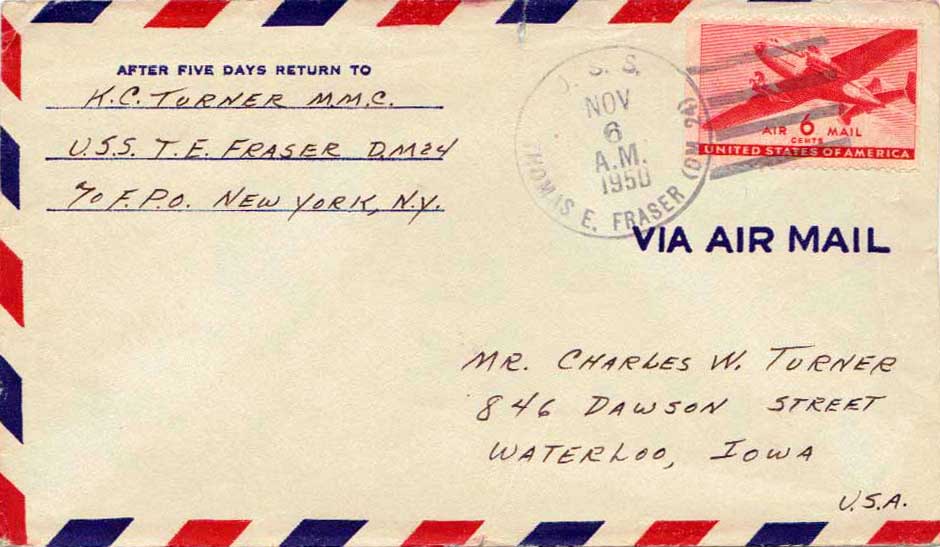 AFTER FIVE DAYS RETURN TO
K.C. TURNER M.M.C.
U.S.S. T.E. FRASER D.M24
℅ F.P.O. NEW YORK, N.Y.
U. S. S.
NOV
6
A.M.
1950
THOMAS E. FRASER (DM 24)
AIR 6 MAIL
CENTS
UNITED STATES OF AMERICA
VIA AIR MAIL
MR. CHARLES W. TURNER
846 DAWSON STREET
WATERLOO, IOWA
U.S.A.